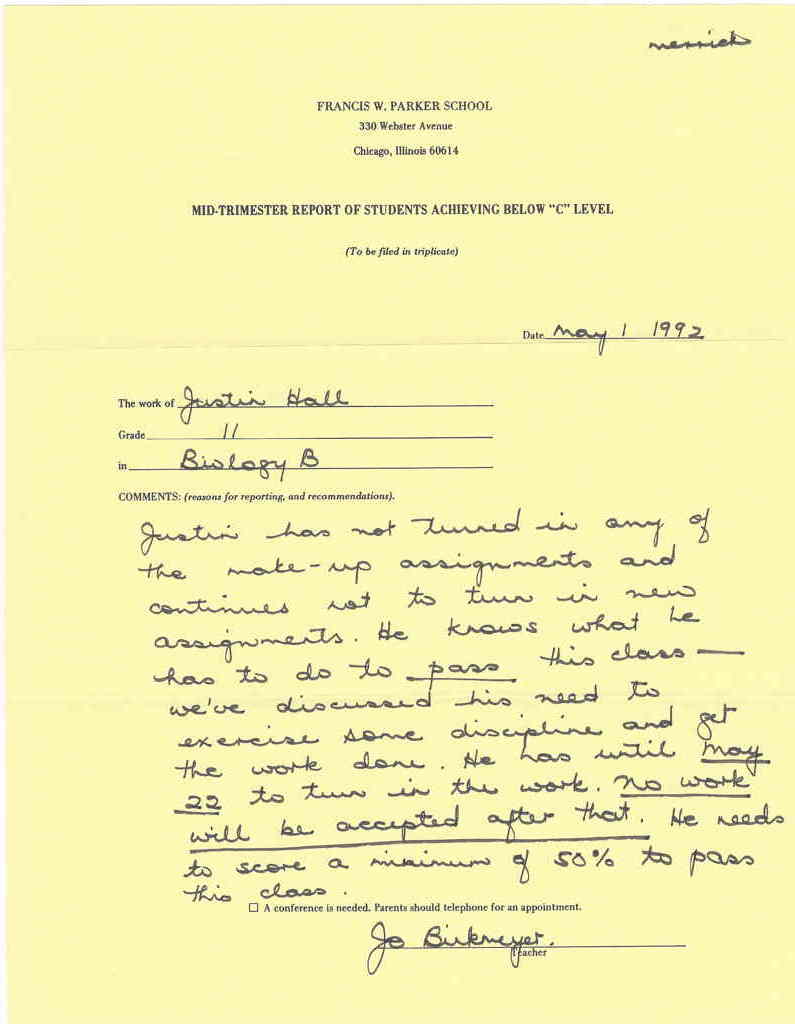 merrick
FRANCIS W. PARKER SCHOOL
330 Webster Avenue
Chicago, Illinois 60614
MID-TRIMESTER REPORT OF STUDENTS ACHIEVING BELOW "C" LEVEL
(To be filed in triplicate)
Date May 1 1992
The work of Justin Hall
Grade 11
in Biology B
COMMENTS: (reasons for reporting, and recommendations).
Justin has not turned in any of
the make-up assignments and
continues not to turn in new
assignments. He knows what he
has to do to pass this class —
we've discussed his need to
exercise some discipline and get
the work done. He has until May
22 to turn in the work. No work
will be accepted after that. He needs
to score a minimum of 50% to pass
this class.
☐ A conference is needed. Parents should telephone for an appointment.
Jo Birkmeyer.
Teacher